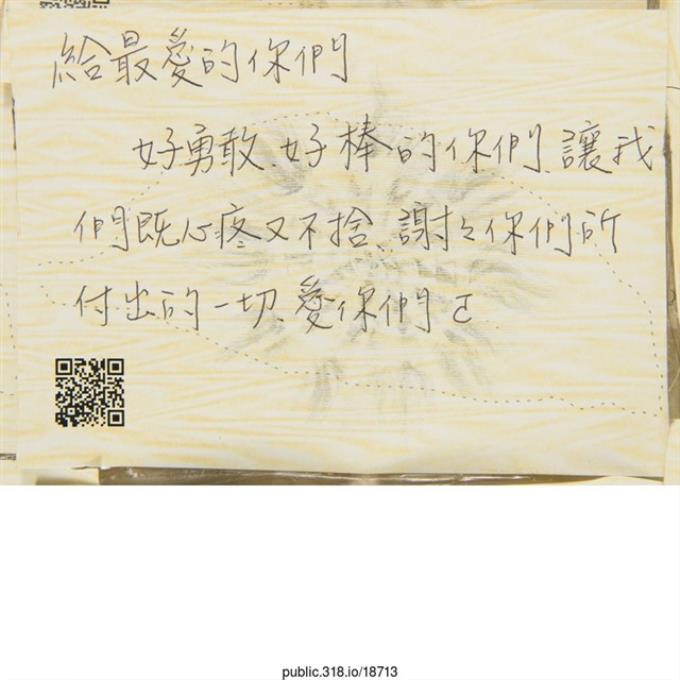 給最愛的你們
好勇敢、好棒的你們、讓我
們既心疼又不捨、謝々你們所
付出的一切、愛你們
public.318.io/18713